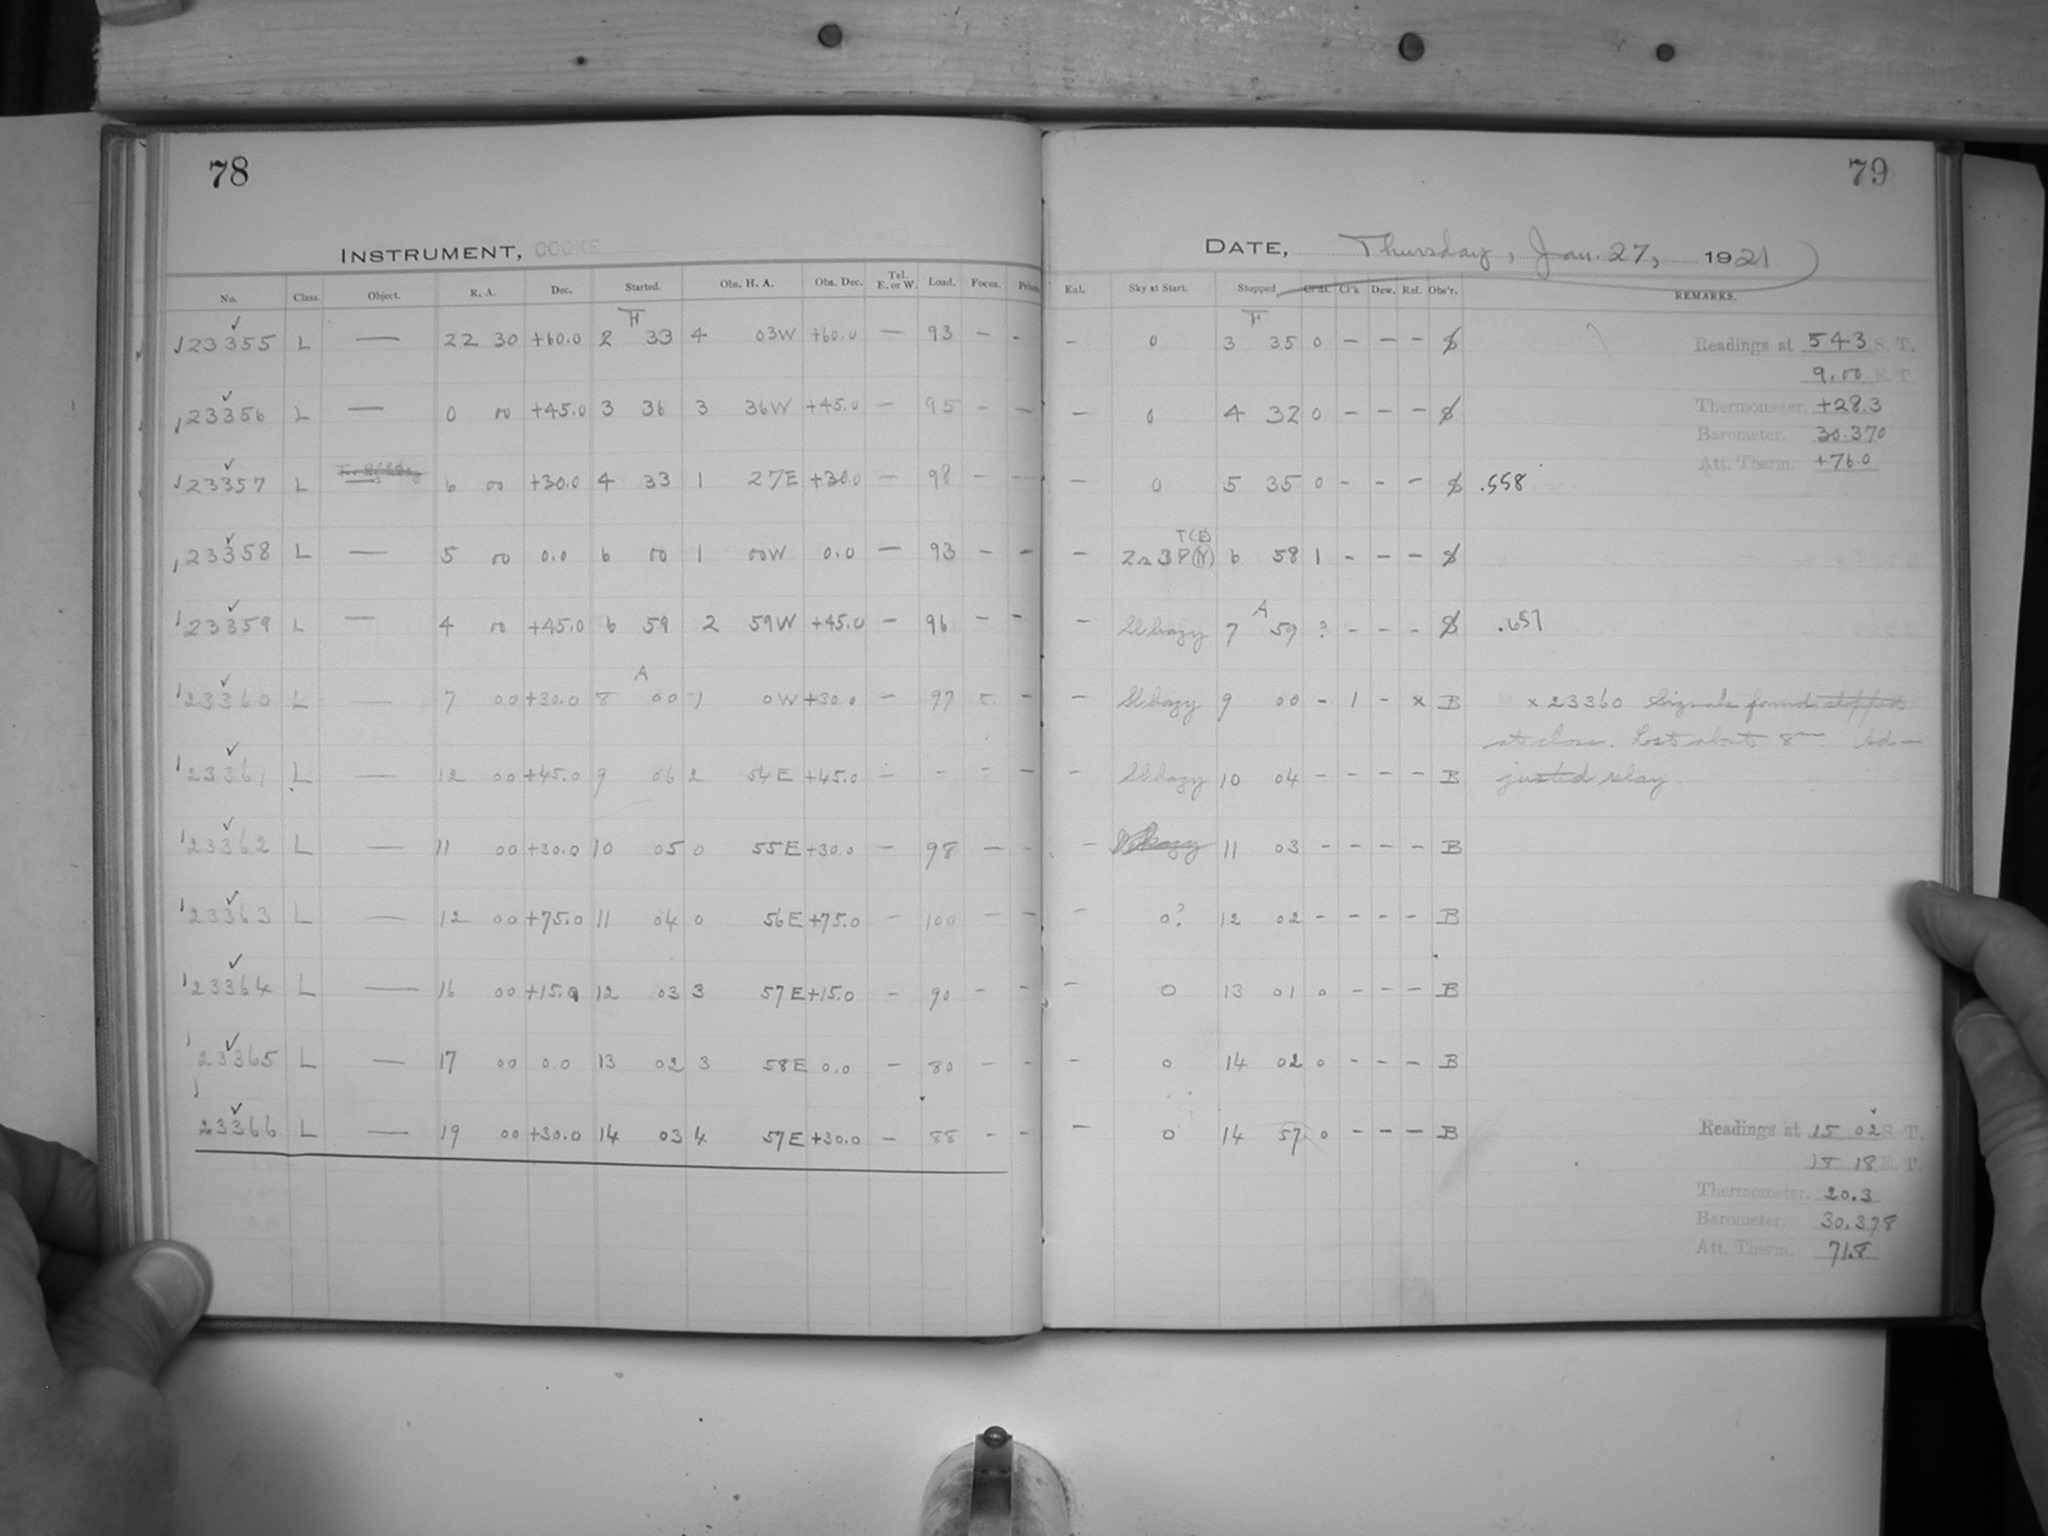 78
INSTRUMENT, COOKE
No. Class. Object. R. A. Dec. Started. Obs. H. A. Obs. Dec. Tel. E. or W. Load. Focus. Prism
H
23355 L — 22 30 +60.0 2 33 4 03W +60.0 — 93 - -
23356 L — 0 00 +45.0 3 36 3 36W +45.0 — 95 - -
23357 L 6 00 +30.0 4 33 1 27E +30.0 — 98 - -
23358 L — 5 00 0.0 6 00 1 00W 0.0 — 93 - -
23359 L — 4 00 +45.0 6 59 2 59W +45.0 - 96 - -
A
23360 L — 7 00 +30.0 8 00 1 0W +30.0 - 97 -
23361 L — 12 00 +45.0 9 06 2 54E +45.0 - - - -
23362 L — 11 00 +30.0 10 05 0 55E +30.0 - 98 - -
23363 L — 12 00 +75.0 11 04 0 56E +75.0 - 100 - -
23364 L — 16 00 +15.0 12 03 3 57E +15.0 - 90 - -
23365 L — 17 00 0.0 13 02 3 58E 0.0 - 80 - -
23366 L — 19 00 +30.0 14 03 4 57E +30.0 - 88 - -
79
DATE, Thursday, Jan. 27, 1921
Exl. Sky at Start. Stopped Cl'k Dew. Ref. Obs'r. REMARKS.
- 0 3 35 0 - - -
- 0 4 32 0 - - -
- 0 5 35 0 - - - .558
- 6 58 1 - - -
Sl hazy 7 59 ? - - - .657
A
- Sl hazy 9 00 - 1 - x B x 23360 Signals found stopped
at close. Lost about 8m Ad-
- Sl hazy 10 04 - - - - B justed relay.
- 11 03 - - - - B
- 0? 12 02 - - - - B
- 0 13 01 0 - - - B
- 0 14 02 0 - - - B
- 0 14 57 0 - - - B
Readings at 5 43 S. T.
9.00 E. T.
Thermometer. +28.3
Barometer. 30.370
Att. Therm. +76.0
Readings at 15 02 S. T.
18 18 E. T.
Thermometer. 20.3
Barometer. 30.378
Att. Therm. 71.8